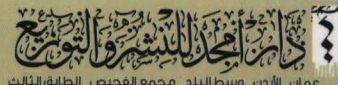 دار أمجد للنشر والتوزيع
عمان الأردن وسط البلد مجمع الفحيص الطابق الثالث